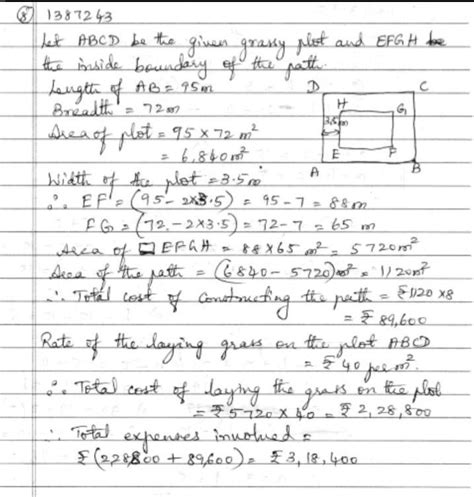 ⑧ 1387243
Let ABCD be the given grassy plot and EFGH
the inside boundary of the path.
Length of AB = 95m
Breadth = 72m
Area of plot = 95 × 72 m²
= 6,840m²
Width of the plot = 3.5m
∴ EF = (95 - 2×3.5) = 95 - 7 = 88m
FG = (72 - 2×3.5) = 72 - 7 = 65 m
Area of ▢ EFGH = 88×65 m² = 5720m²
Area of the path = (6840 - 5720)m² = 1120m²
∴ Total cost of constructing the path = ₹1120 ×8
= ₹ 89,600
Rate of the laying grass on the plot ABCD
= ₹ 40 per m².
∴ Total cost of laying the grass on the plot
= ₹5720 × 40 = ₹ 2,28,800
∴ Total expenses involved =
₹ (228800 + 89,600) = ₹ 3,18,400
D C
H G
3.5m
E F
A B